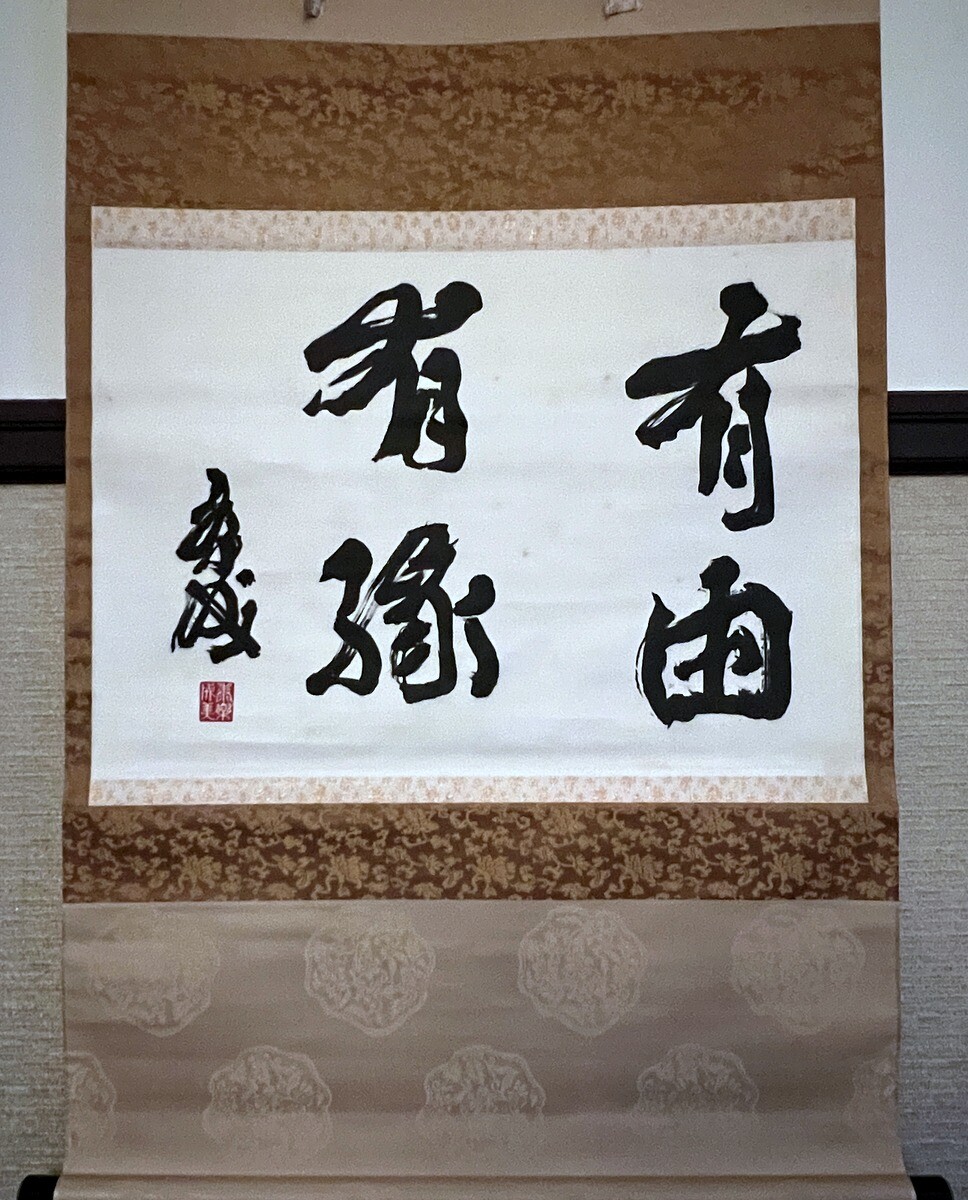 有由
有緣